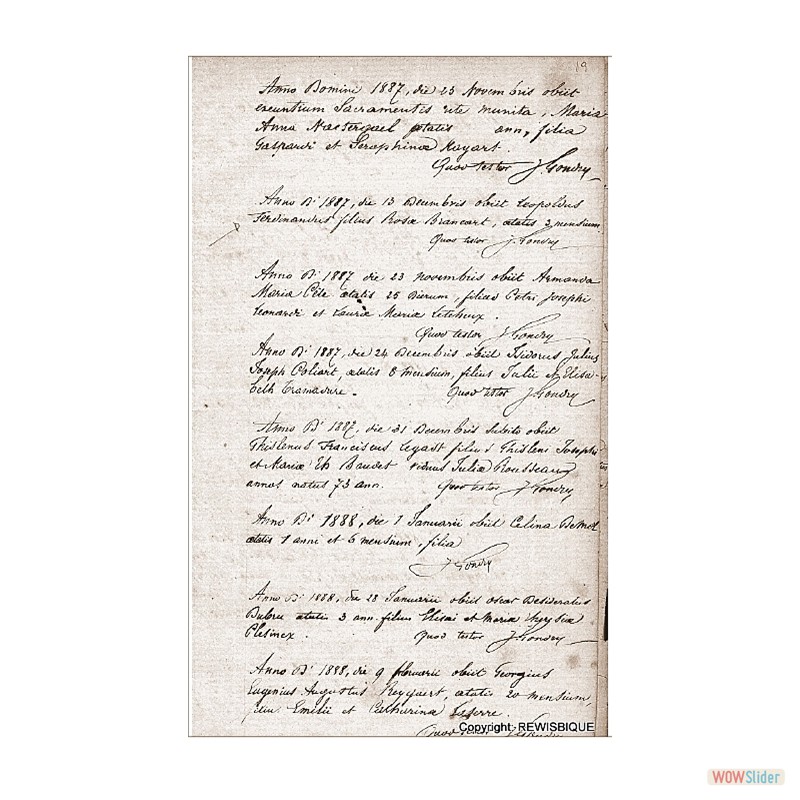 19
Anno Domini 1887, die 23 Novembris obiit
exeuntium Sacramentis rite munita, Maria
Anna Nastergael aetatis ann, filia
Gaspardi et Seraphinae Rayart.
Quod testor J. Gondry
Anno D. 1887, die 13 Decembris obiit Leopoldus
Ferdinandus filius Rosae Brancart, aetatis 3 mensium
Quod testor J. Gondry
Anno D. 1887 die 23 novembris obiit Armanda
Maria aetatis 25 dierum, filia Petri Josephi
Leonardi et Mariae
Quod testor J. Gondry
Anno D. 1887, die 24 Decembris obiit Isidorus Julius
Joseph Poliart, aetatis 8 mensium, filius Julii et Elisa-
beth Tramadure.
Quod testor J. Gondry
Anno D. 1887, die 21 Decembris subito obiit
Ghislenus Franciscus Legast filius Ghisleni Josephi
et Mariae Baudet viduus Juliae Rousseaux
annos natus 73 ann. Quod testor J. Gondry
Anno D. 1888, die 1 Januarii obiit Celina
aetatis 1 anni et 6 mensium, filia
J. Gondry
Anno D. 1888, die 28 Januarii obiit Oscar Desideratus
aetatis 3 ann. filius Elisaei et Maria
Plétinex. Quod testor J. Gondry
Anno D. 1888, die 9 februarii obiit Georgius
Eugenius Augustus aetatis 20 mensium,
filius Emilii et Catharina
Quod testor
Copyright: REWISBIQUE
WOWSlider